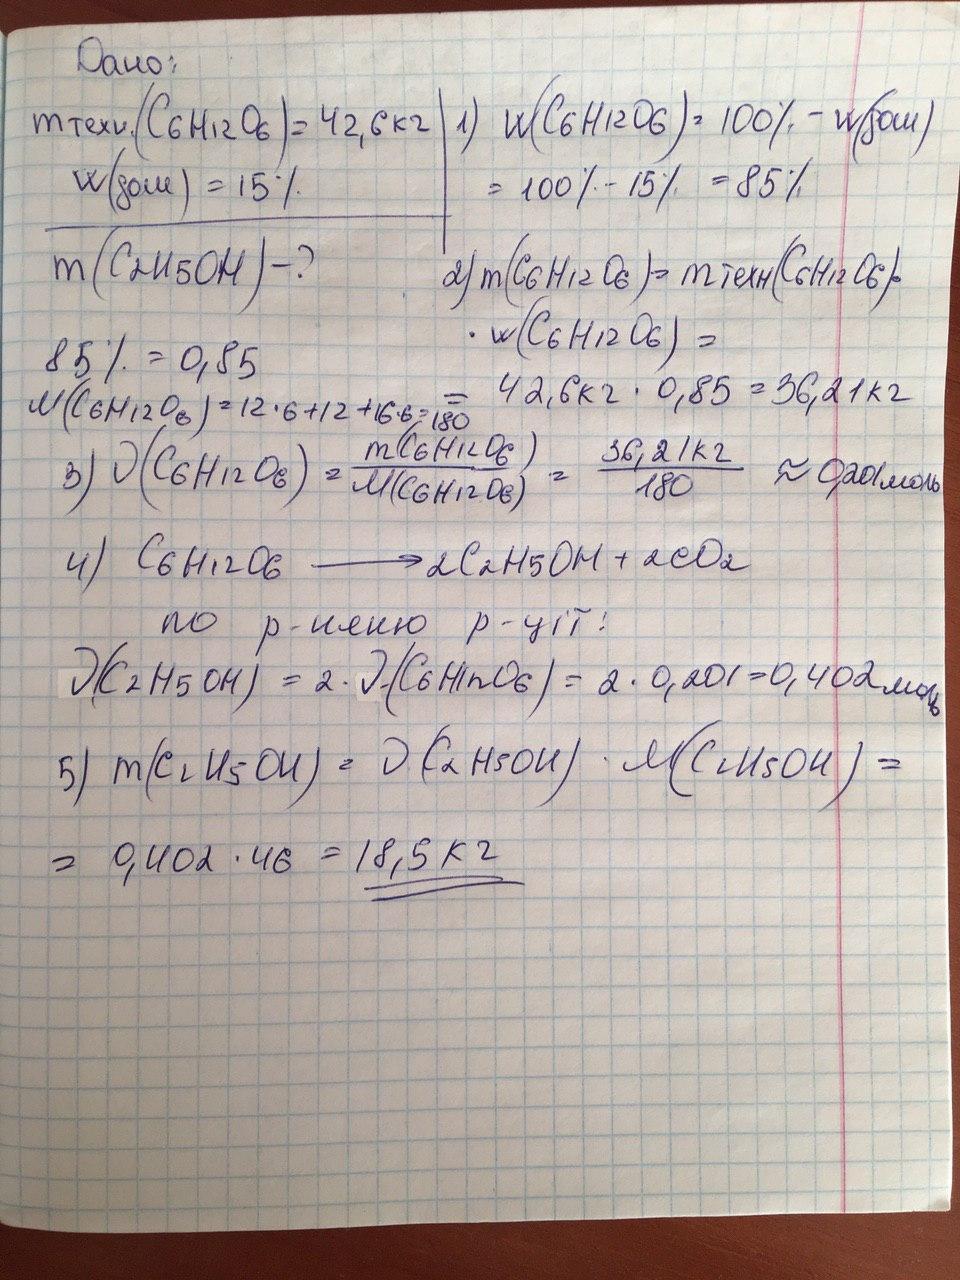 Дано:
m техн.(C6H12O6) = 42,6 кг
W(дом) = 15%
m(C2H5OH) - ?
85% = 0,85
M(C6H12O6) = 12·6+12+16·6=180
1) W(C6H12O6) = 100% - W(дом)
= 100% - 15% = 85%
2) m(C6H12O6) = m техн(C6H12O6)·
· W(C6H12O6) =
= 42,6 кг · 0,85 = 36,21 кг
3) ν(C6H12O6) = m(C6H12O6) / M(C6H12O6) = 36,21 кг / 180 ≈ 0,201 моль
4) C6H12O6 ⟶ 2C2H5OH + 2CO2
по р-нню р-ції:
ν(C2H5OH) = 2·ν(C6H12O6) = 2·0,201=0,402 моль
5) m(C2H5OH) = ν(C2H5OH) · M(C2H5OH) =
= 0,402 · 46 = 18,5 кг